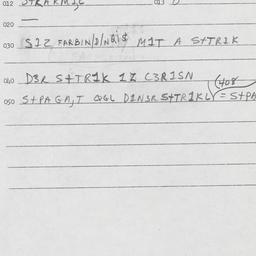 012 STRAKMIC 013
020 —
030 SIZ FARBIN/2/N MIT A S+TRIK
040 D3R S+TRIK IZ C3RISN
(408
050 S+PAGA,T QGL DINSR S+TRIKL = S+PA